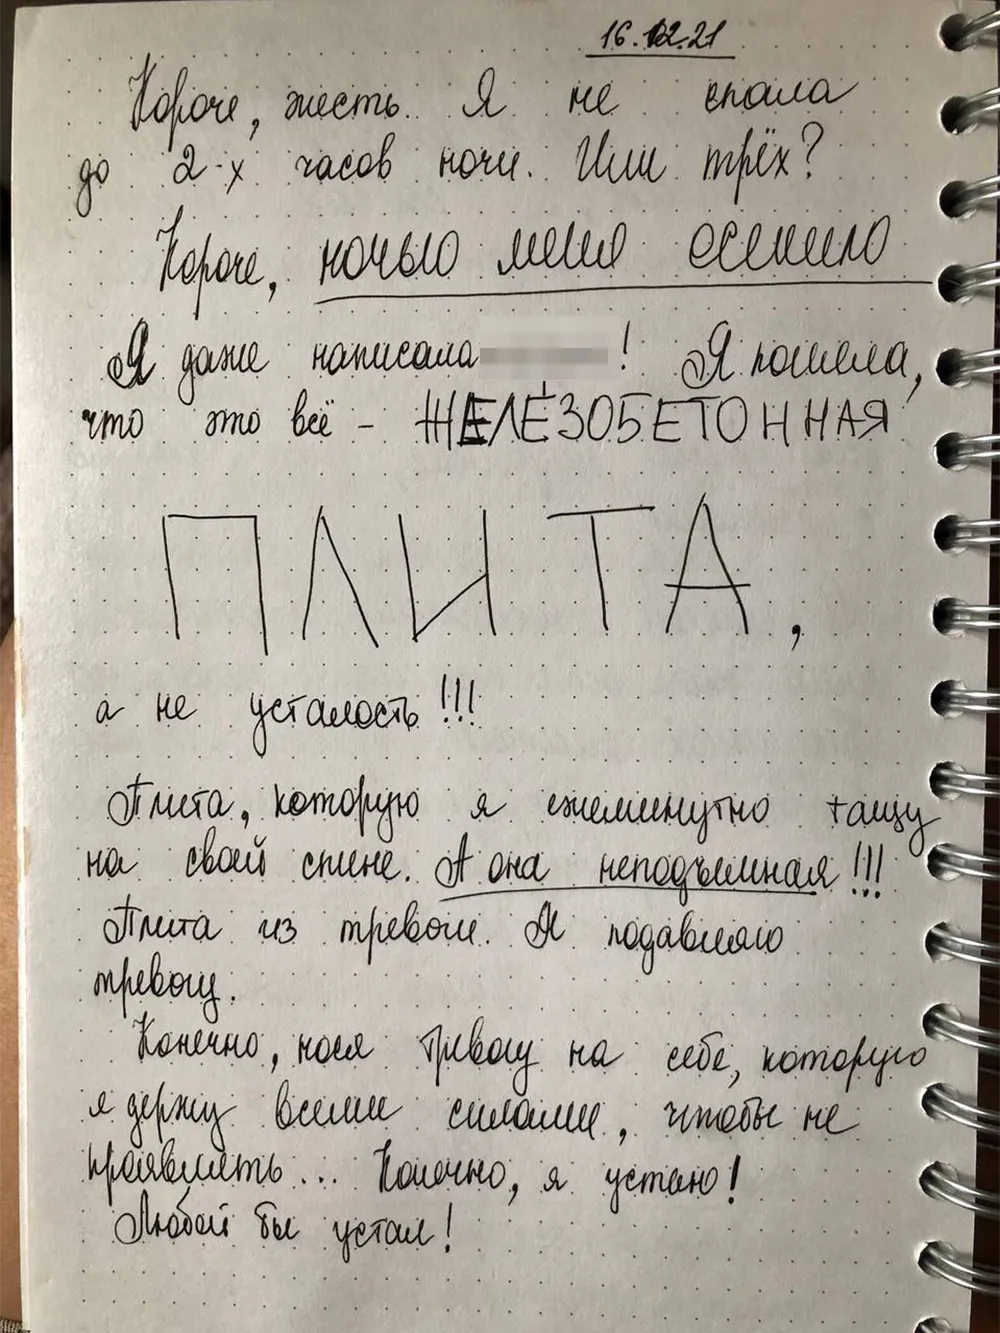 16.02.21
Короче, жесть. Я не спала
до 2-х часов ночи. Или трёх?
Короче, ночью меня осенило
Я даже написала !  Я поняла,
что это всё - ЖЕЛЕЗОБЕТОННАЯ
ПЛИТА,
а не усталость!!!
Плита, которую я ежеминутно тащу
на своей спине. А она неподъемная!!!
Плита из тревоги. Я подавляю
тревогу.
Конечно, нося тревогу на себе, которую
я держу всеми силами, чтобы не
проявлять... Конечно, я устаю!
Любой бы устал!